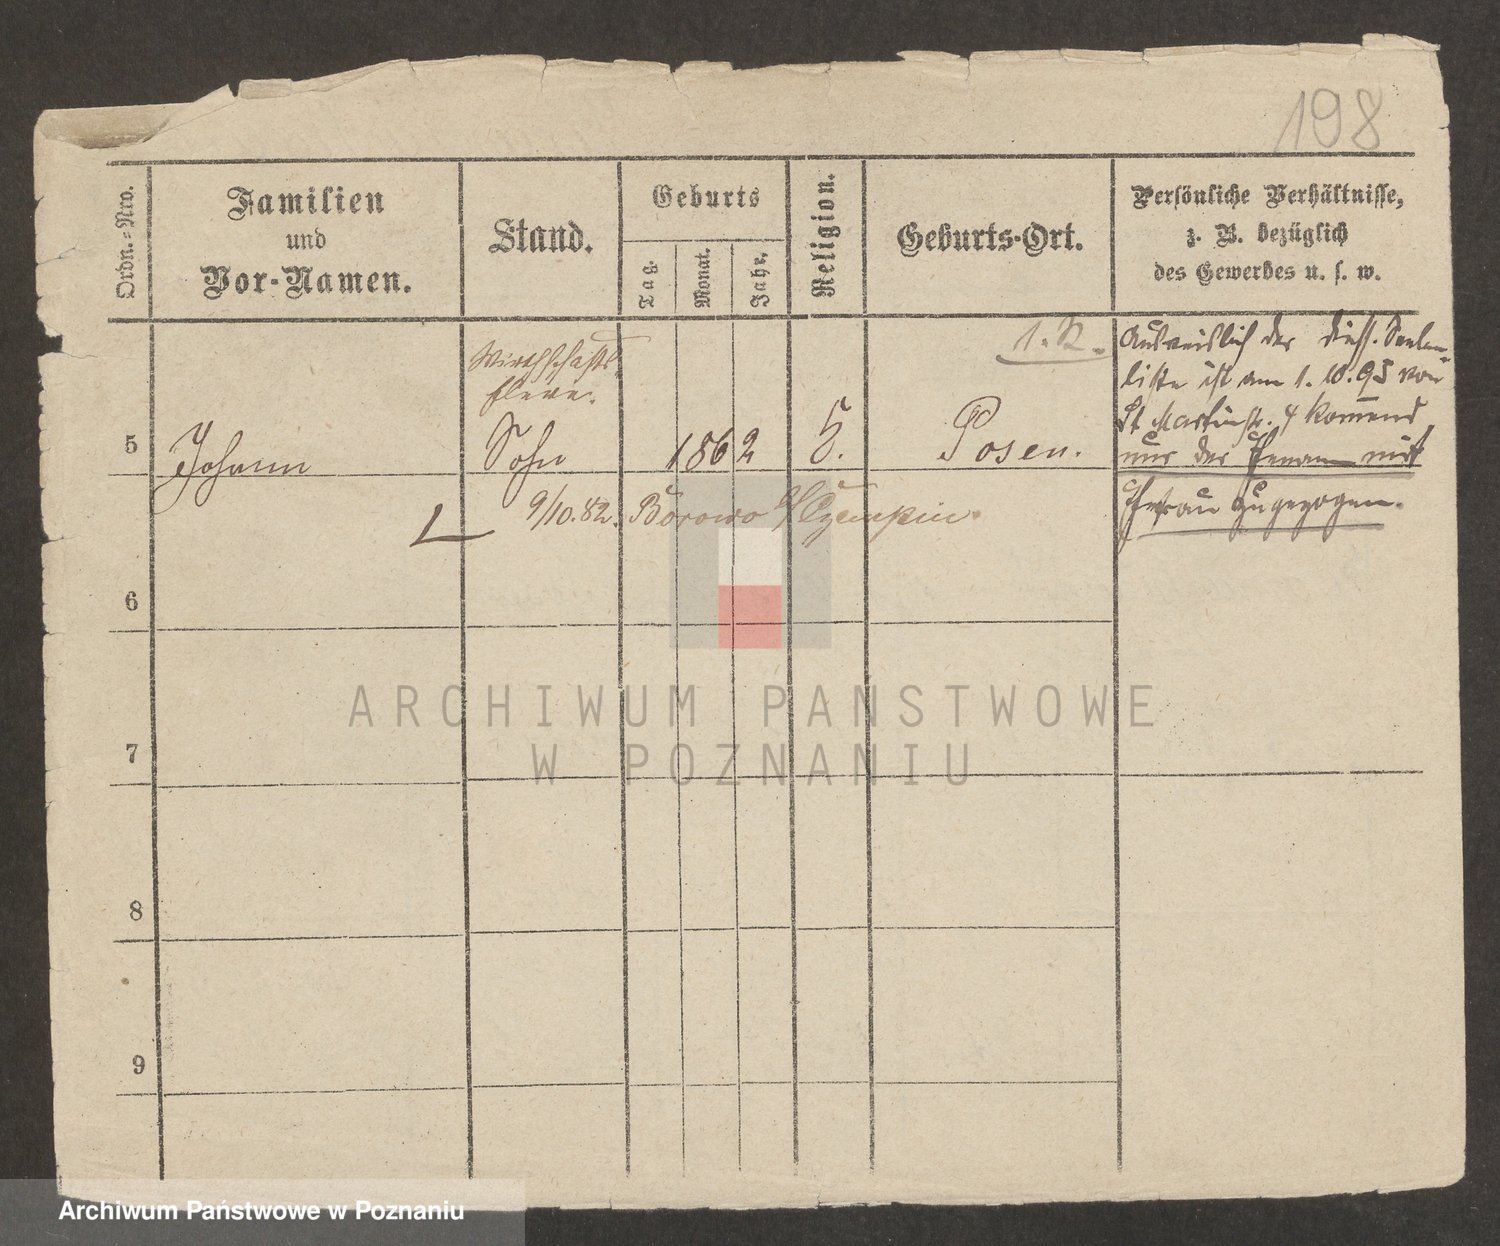 198
Ordn.-Nro.
Familien
und
Vor-Namen.
Stand.
Geburts
Tag.
Monat.
Jahr.
Religion.
Geburts-Ort.
Persönliche Verhältnisse,
z. B. bezüglich
des Gewerbes u. s. w.
Wirthschafts-
Eleve.
5
Johann
Sohn
1862
Posen.
9/10.82. Borowo b/Czempin.
Ausweislich der diess. Seelen-
liste ist am 1.10.93 von
St Martinstr. 4 kommend
nur der Ehemann mit
Ehefrau zugezogen.
6
7
8
9
ARCHIWUM PAŃSTWOWE
W POZNANIU
Archiwum Państwowe w Poznaniu